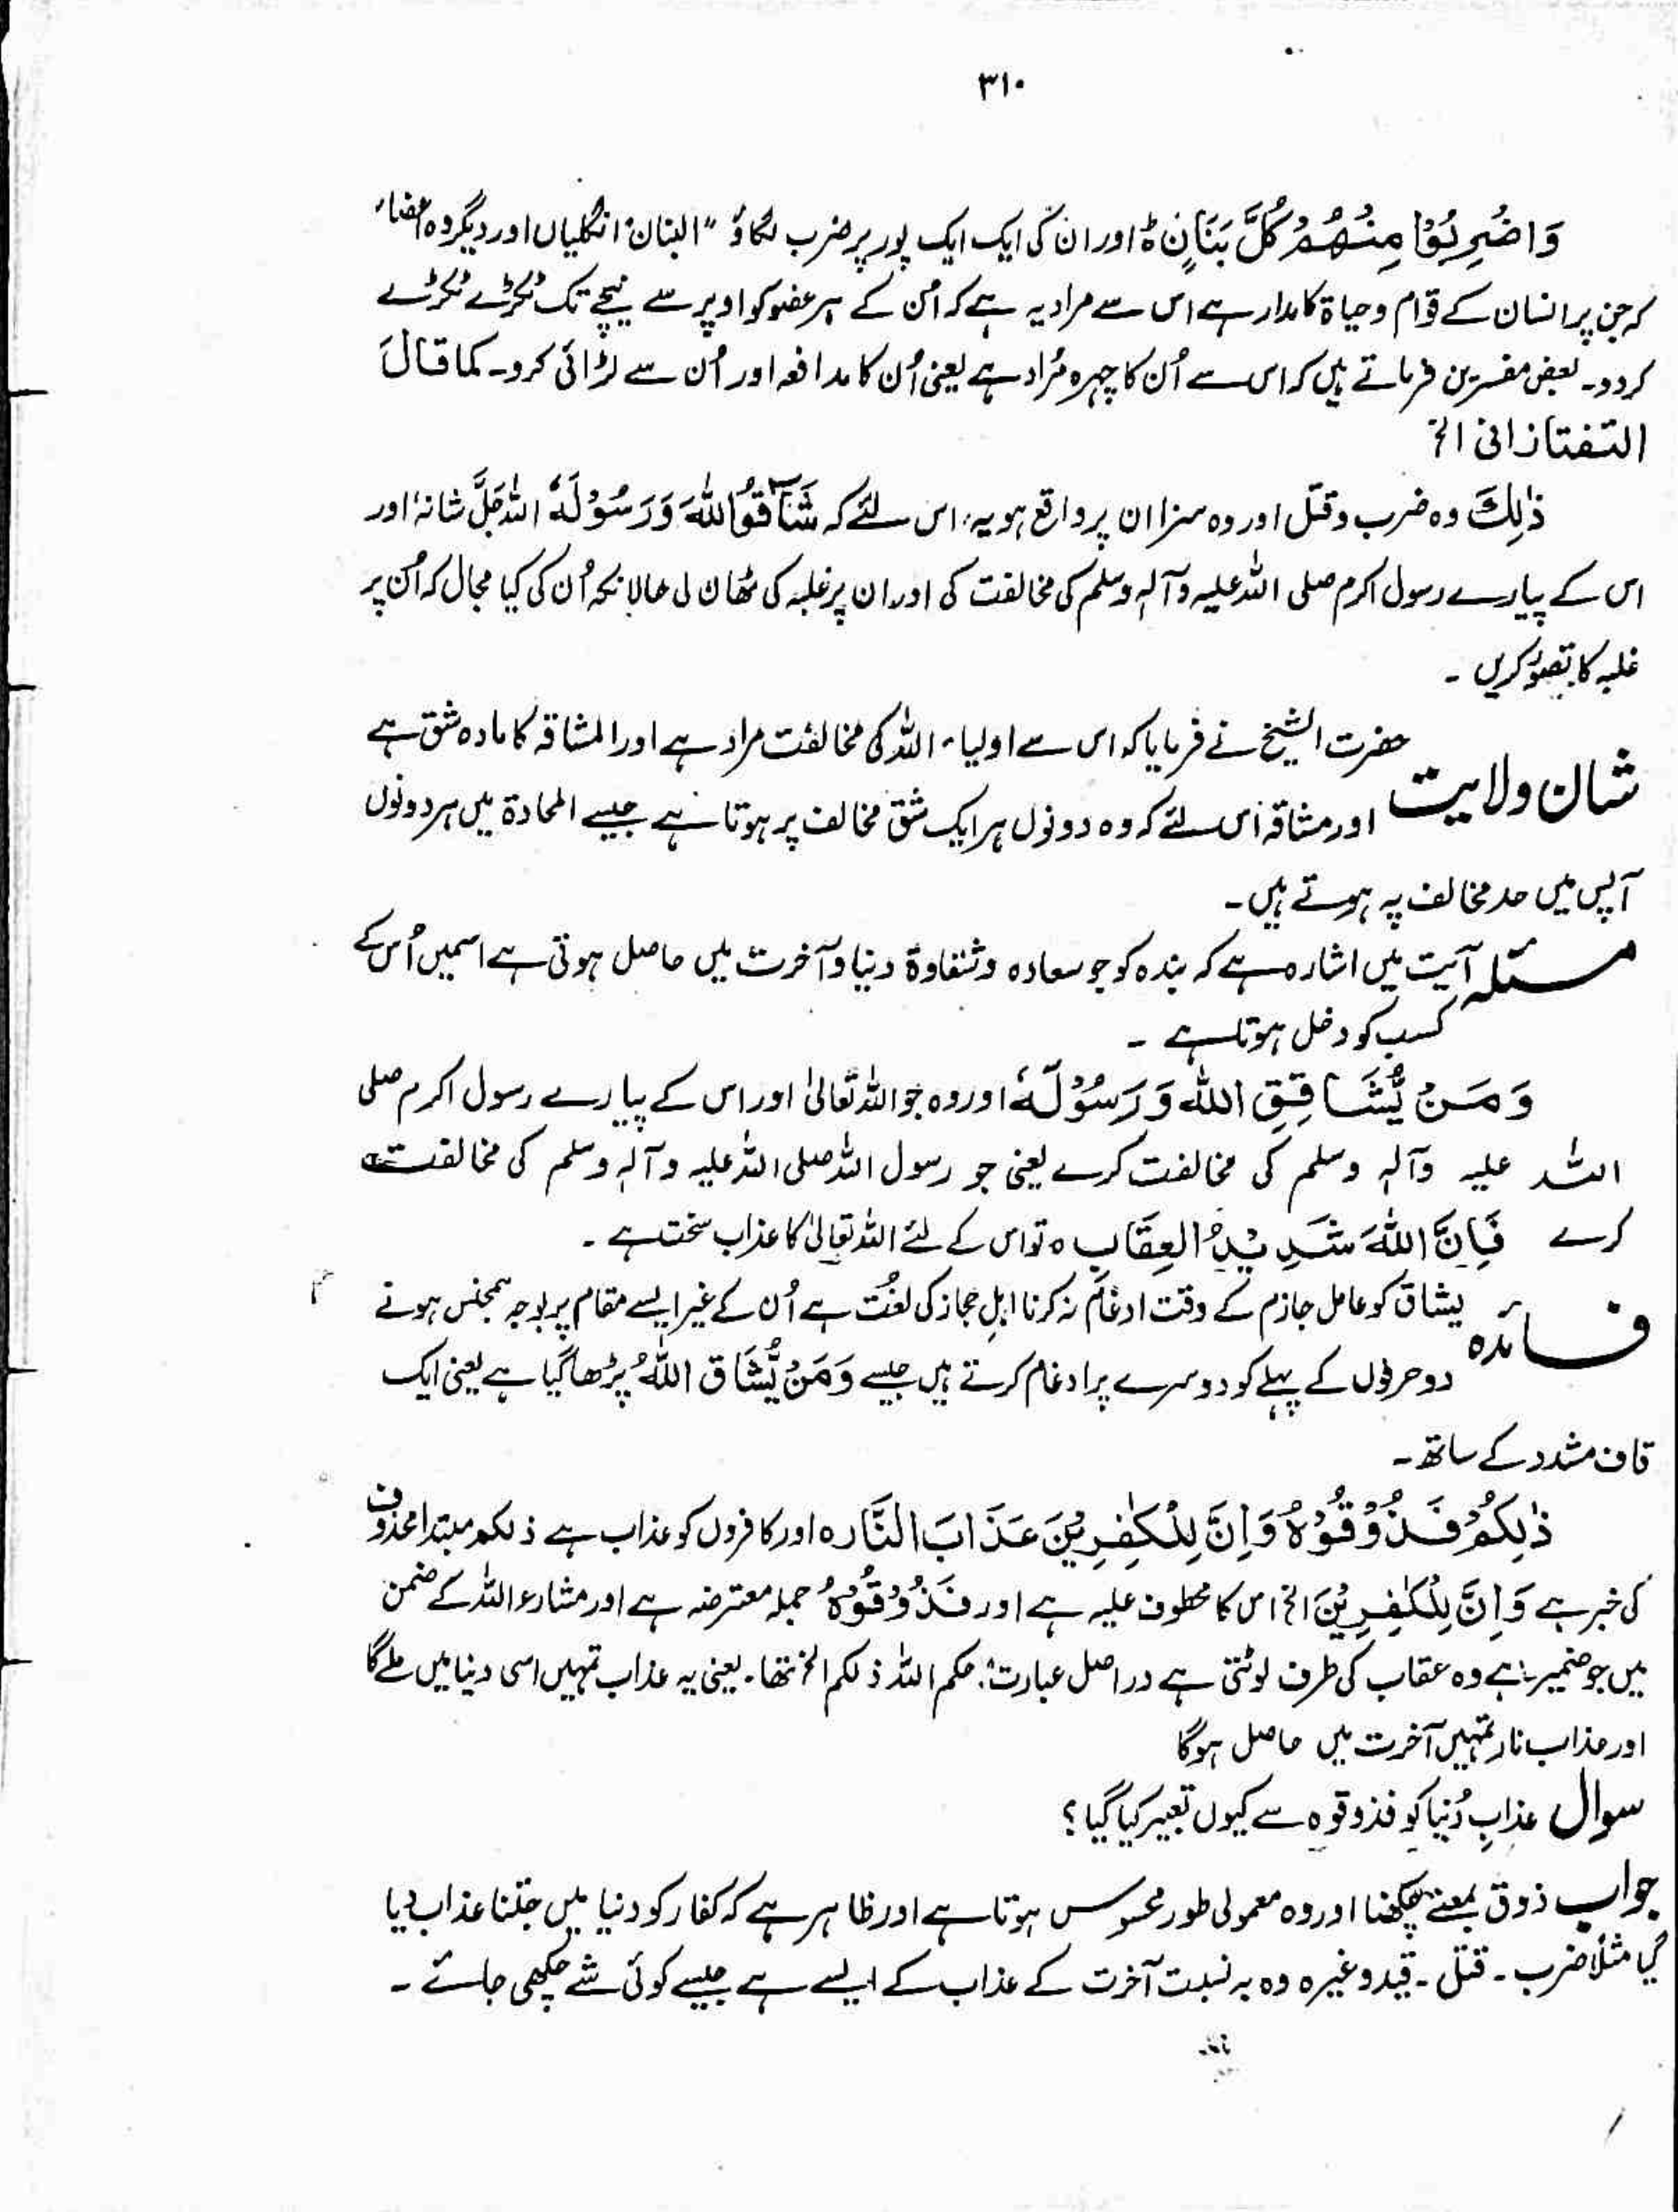 ۳۱۰
وَاضْرِبُوْا مِنْهُمْ كُلَّ بَنَانٍ ہ اور ان کی ایک ایک پور پر ضرب لگاؤ "البنان: انگلیاں اور دیگر وہ اعضاء
کہ جن پر انسان کے قوام و حیاۃ کا مدار ہے اس سے مراد یہ ہے کہ اُن کے ہر عضو کو اوپر سے نیچے تک ٹکڑے ٹکڑے
کردو۔ بعض مفسرین فرماتے ہیں کہ اس سے اُن کا چہرہ مُراد ہے یعنی اُن کا مدافعہ اور اُن سے لڑائی کرو۔ کما قالَ
التفتازانی الخ
ذٰلِكَ وہ ضرب و قتل اور وہ سزا ان پر واقع ہو یہ، اس لئے کہ شَآقُّوا اللّٰهَ وَرَسُوْلَهٗ اللہ جَلَّ شانہٗ اور
اس کے پیارے رسول اکرم صلی اللہ علیہ وآلہٖ وسلم کی مخالفت کی اور ان پر غلبہ کی ٹھان لی حالانکہ اُن کی کیا مجال کہ اُن پر
غلبہ کا تصوّر کریں ۔
حضرت الشیخ نے فرمایا کہ اس سے اولیاء اللہ کی مخالفت مراد ہے اور المشاقہ کا مادہ شق ہے
شان ولایت اور مشاقہ اس لئے کہ وہ دونوں ہر ایک شق مخالف پر ہوتا ہے جیسے المحادۃ میں ہر دونوں
آپس میں حد مخالف پہ ہوتے ہیں۔
مسئلہ آیت میں اشارہ ہے کہ بندہ کو جو سعادہ و شقاوۃ دنیا و آخرت میں حاصل ہوتی ہے اسمیں اُس کے
کسب کو دخل ہوتا ہے ۔
وَمَنْ يُّشَاقِقِ اللّٰهَ وَرَسُوْلَهٗ اور وہ جو اللہ تعالیٰ اور اس کے پیارے رسول اکرم صلی
اللہ علیہ وآلہٖ وسلم کی مخالفت کرے یعنی جو رسول اللہ صلی اللہ علیہ وآلہٖ وسلم کی مخالفت
کرے فَاِنَّ اللّٰهَ شَدِيْدُ الْعِقَابِ ہ تو اس کے لئے اللہ تعالیٰ کا عذاب سخت ہے ۔
فائدہ یشاق کو عامل جازم کے وقت ادغام نہ کرنا اہلِ حجاز کی لغت ہے اُن کے غیر ایسے مقام پر بوجہ ہمجنس ہونے
دو حرفوں کے پہلے کو دوسرے پر ادغام کرتے ہیں جیسے وَمَنْ يُّشَاقِ اللّٰهُ پڑھا گیا ہے یعنی ایک
قاف مشدد کے ساتھ۔
ذٰلِكُمْ فَذُوْقُوْهُ وَاَنَّ لِلْكٰفِرِيْنَ عَذَابَ النَّارِ ہ اور کافروں کو عذاب ہے ذلکم مبتدا محذوف
کی خبر ہے وَاَنَّ لِلْكٰفِرِيْنَ الخ اس کا معطوف علیہ ہے اور فَذُوْقُوْهُ جملہ معترضہ ہے اور مشارٌ الیہ کے ضمن
میں جو ضمیر ہے وہ عقاب کی طرف لوٹتی ہے دراصل عبارت: حکم اللہ ذلکم الخ تھا۔ یعنی یہ عذاب تمہیں اسی دنیا میں ملے گا
اور عذاب نار تمہیں آخرت میں حاصل ہوگا
سوال عذابِ دُنیا کو فذوقوہ سے کیوں تعبیر کیا گیا ؟
جواب ذوق بمعنے چکھنا اور وہ معمولی طور محسوس ہوتا ہے اور ظاہر ہے کہ کفار کو دنیا میں جتنا عذاب دیا
گیا مثلاً ضرب ۔ قتل ۔ قید وغیرہ وہ بہ نسبت آخرت کے عذاب کے ایسے ہے جیسے کوئی شے چکھی جائے ۔